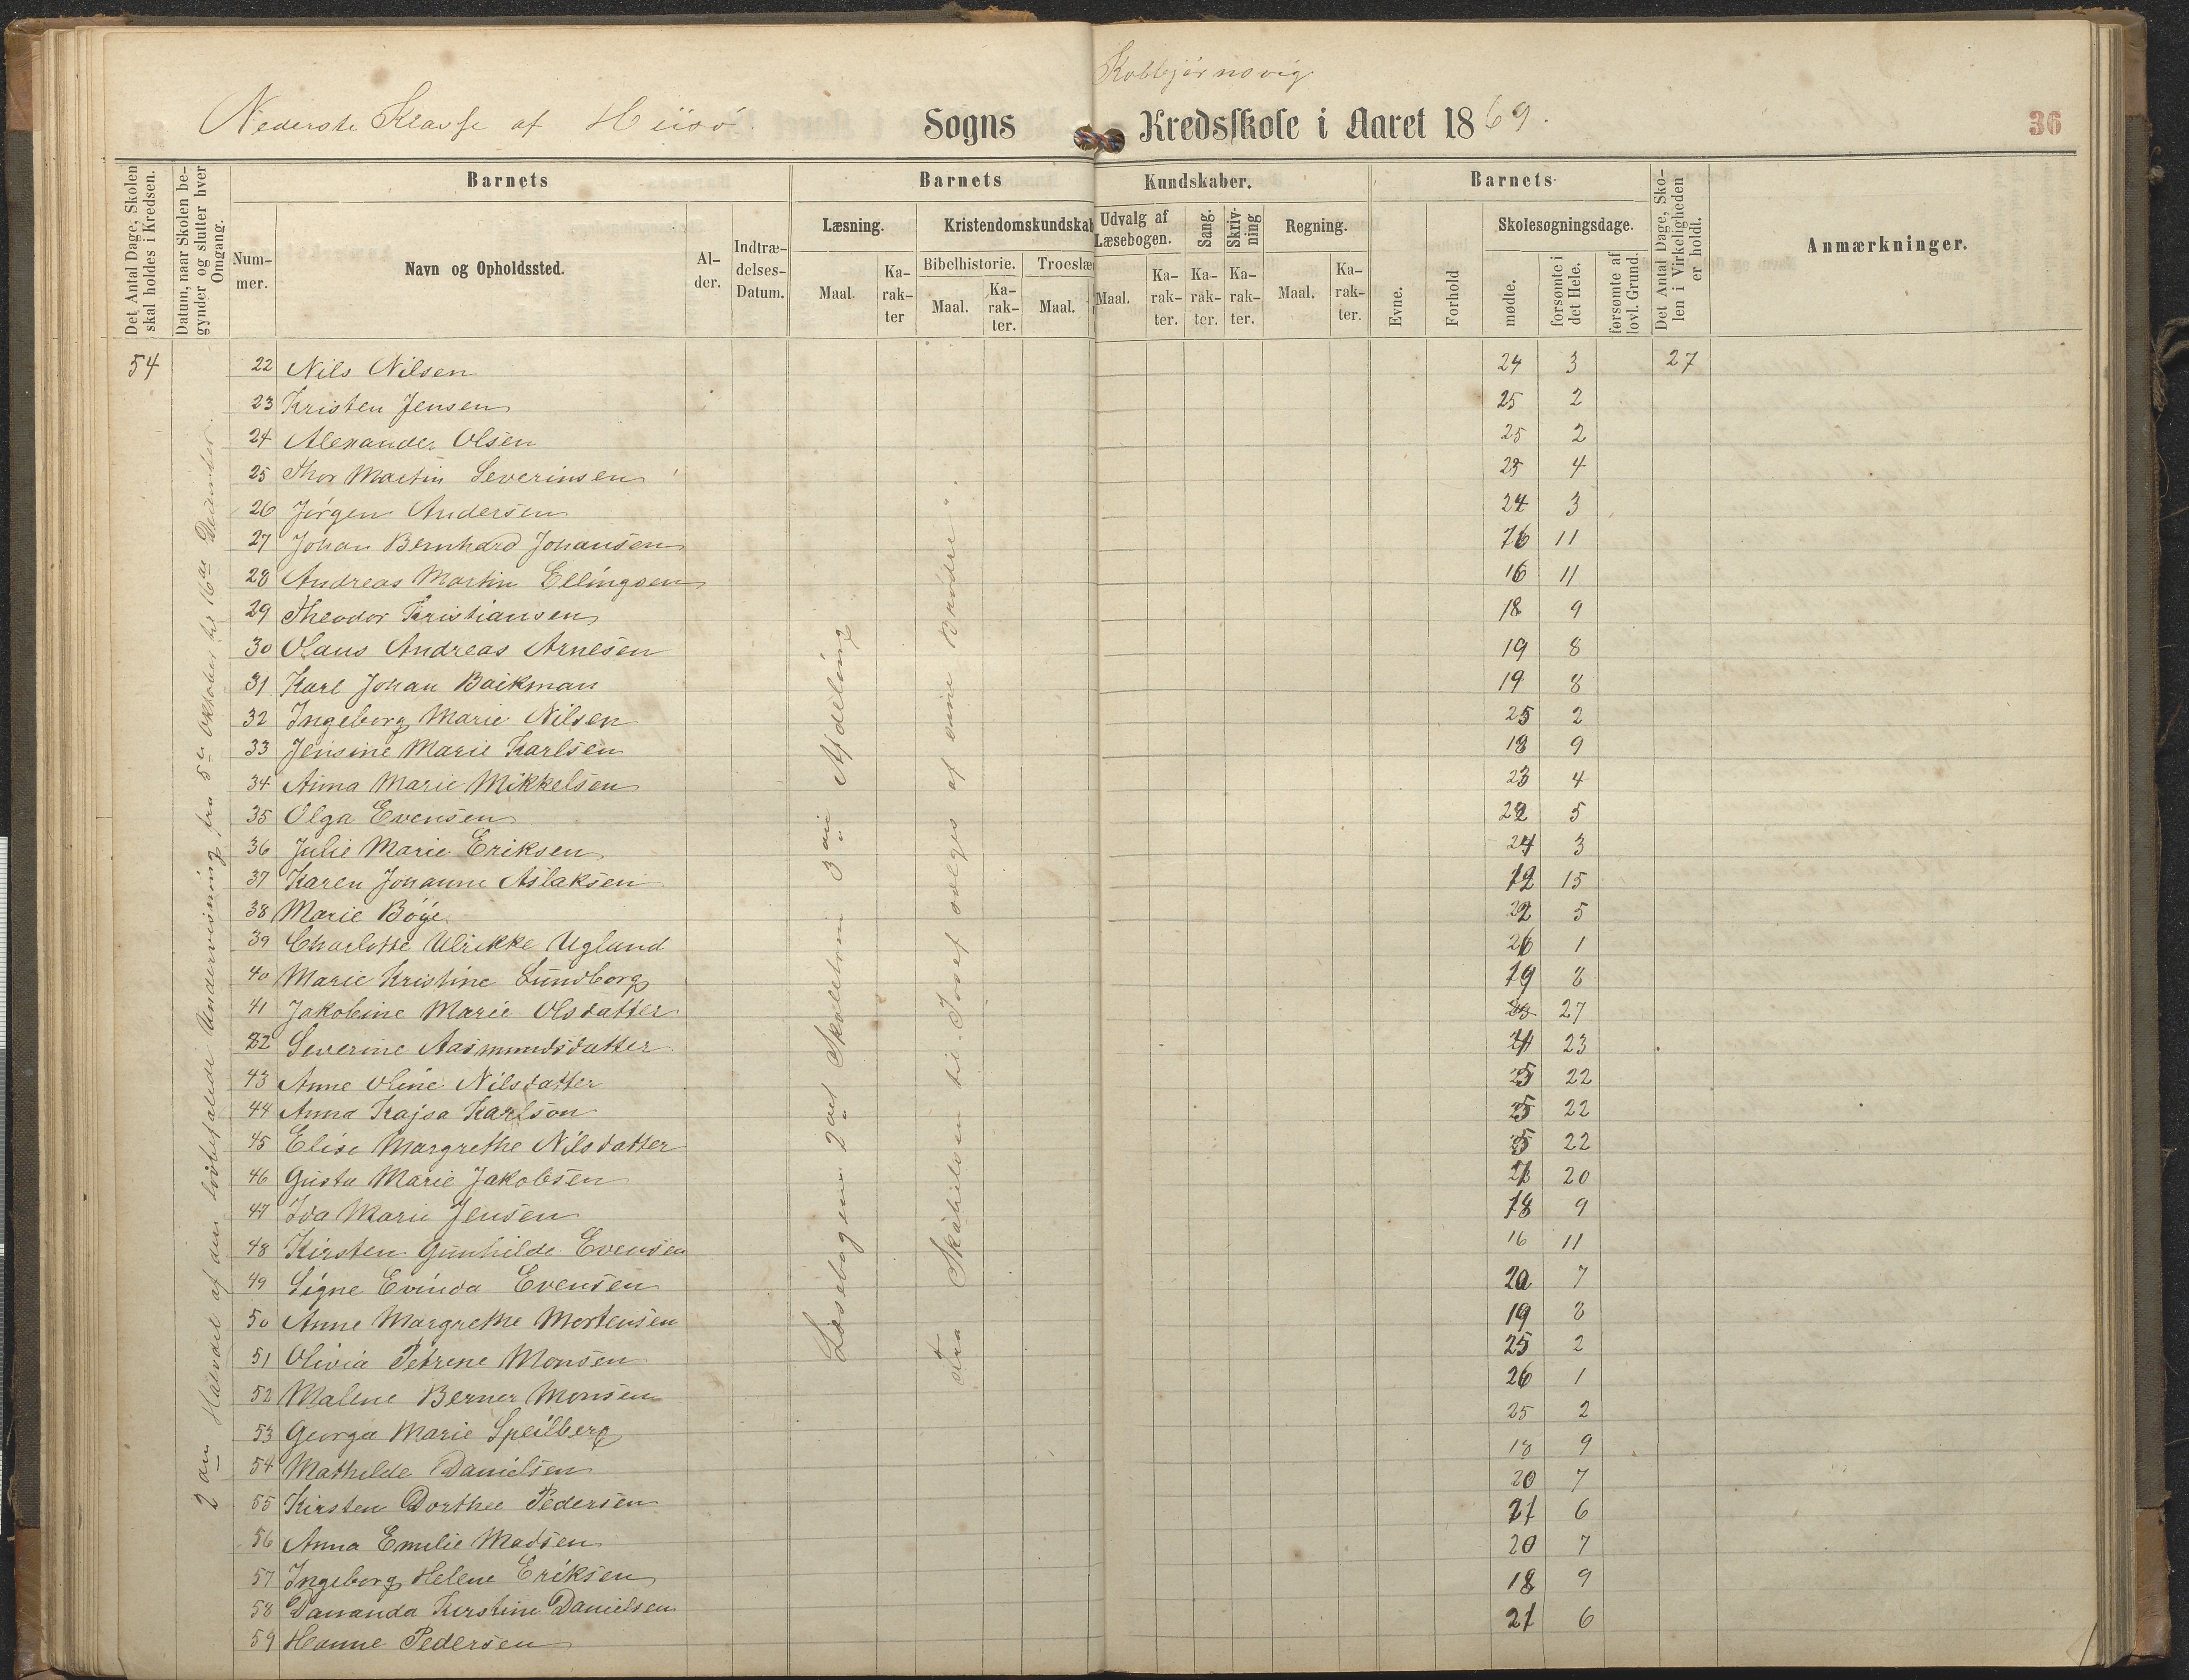 Kolbjørnsvig
Nederste Klasse af Hiisø Sogns Kredsskole i Aaret 1869.
36
Det Antal Dage, Skolen skal holdes i Kredsen.
Datum, naar Skolen begynder og slutter hver Omgang.
Barnets
Nummer.
Navn og Opholdssted.
Alder.
Indtrædelses-Datum.
Barnets Kundskaber.
Læsning.
Maal.
Karakter
Kristendomskundskab
Bibelhistorie.
Maal.
Karakter.
Troeslæ
Maal.
Udvalg af Læsebogen.
Maal.
Karakter.
Sang.
Karakter.
Skrivning
Karakter.
Regning.
Maal.
Karakter.
Barnets
Evne.
Forhold
Skolesøgningsdage.
mødte.
forsømte i det Hele.
forsømte af lovl. Grund.
Det Antal Dage, Skolen i Virkeligheden er holdt.
Anmærkninger.
54 22 Nils Nilsen 24 3 27
23 Kristen Jensen 25 2
24 Alexander Olsen 25 2
25 Thor Martin Severinsen 23 4
26 Jørgen Andersen 24 3
27 Johan Bernhard Johansen 16 11
28 Andreas Martin Ellingsen 16 11
29 Theodor Kristiansen 18 9
30 Olaus Andreas Arnesen 19 8
31 Karl Johan Backman 19 8
32 Ingeborg Marie Nilsen 25 2
33 Jensine Marie Karlsen 18 9
34 Anna Marie Mikkelsen 23 4
35 Olga Evensen 22 5
36 Julie Marie Eriksen 24 3
37 Karen Johanne Aslaksen 12 15
38 Marie Bøye 22 5
39 Charlotte Ulrikke Ugland 26 1
40 Marie Kristine Lundborg 19 8
41 Jakobine Marie Olsdatter 27
42 Severine Aasmundsdatter 4 23
43 Anne Oline Nilsdatter 5 22
44 Anna Kajsa Karlson 5 22
45 Elise Margrethe Nilsdatter 5 22
46 Gusta Marie Jakobsen 7 20
47 Ida Marie Jensen 18 9
48 Kirsten Gunhilde Evensen 16 11
49 Signe Evinda Evensen 20 7
50 Anne Margrethe Mortensen 19 8
51 Olivia Petrene Monsen 25 2
52 Malene Berner Monsen 26 1
53 Georga Marie Speilberg 25 2
54 Mathilde Danielsen 18 9
55 Kirsten Dorthee Pedersen 20 7
56 Anna Emilie Madsen 21 6
57 Ingeborg Helene Eriksen 20 7
58 Dananda Kirstine Danielsen 18 9
59 Hanne Pedersen 21 6
2den Halvdel af den lovbefalede Undervisning fra 5te Oktober til 16de December.
Læsebogens 2det Skoletrin 3die Afdeling
Fra Skabelsen til Josef sælges af sine Brødre.